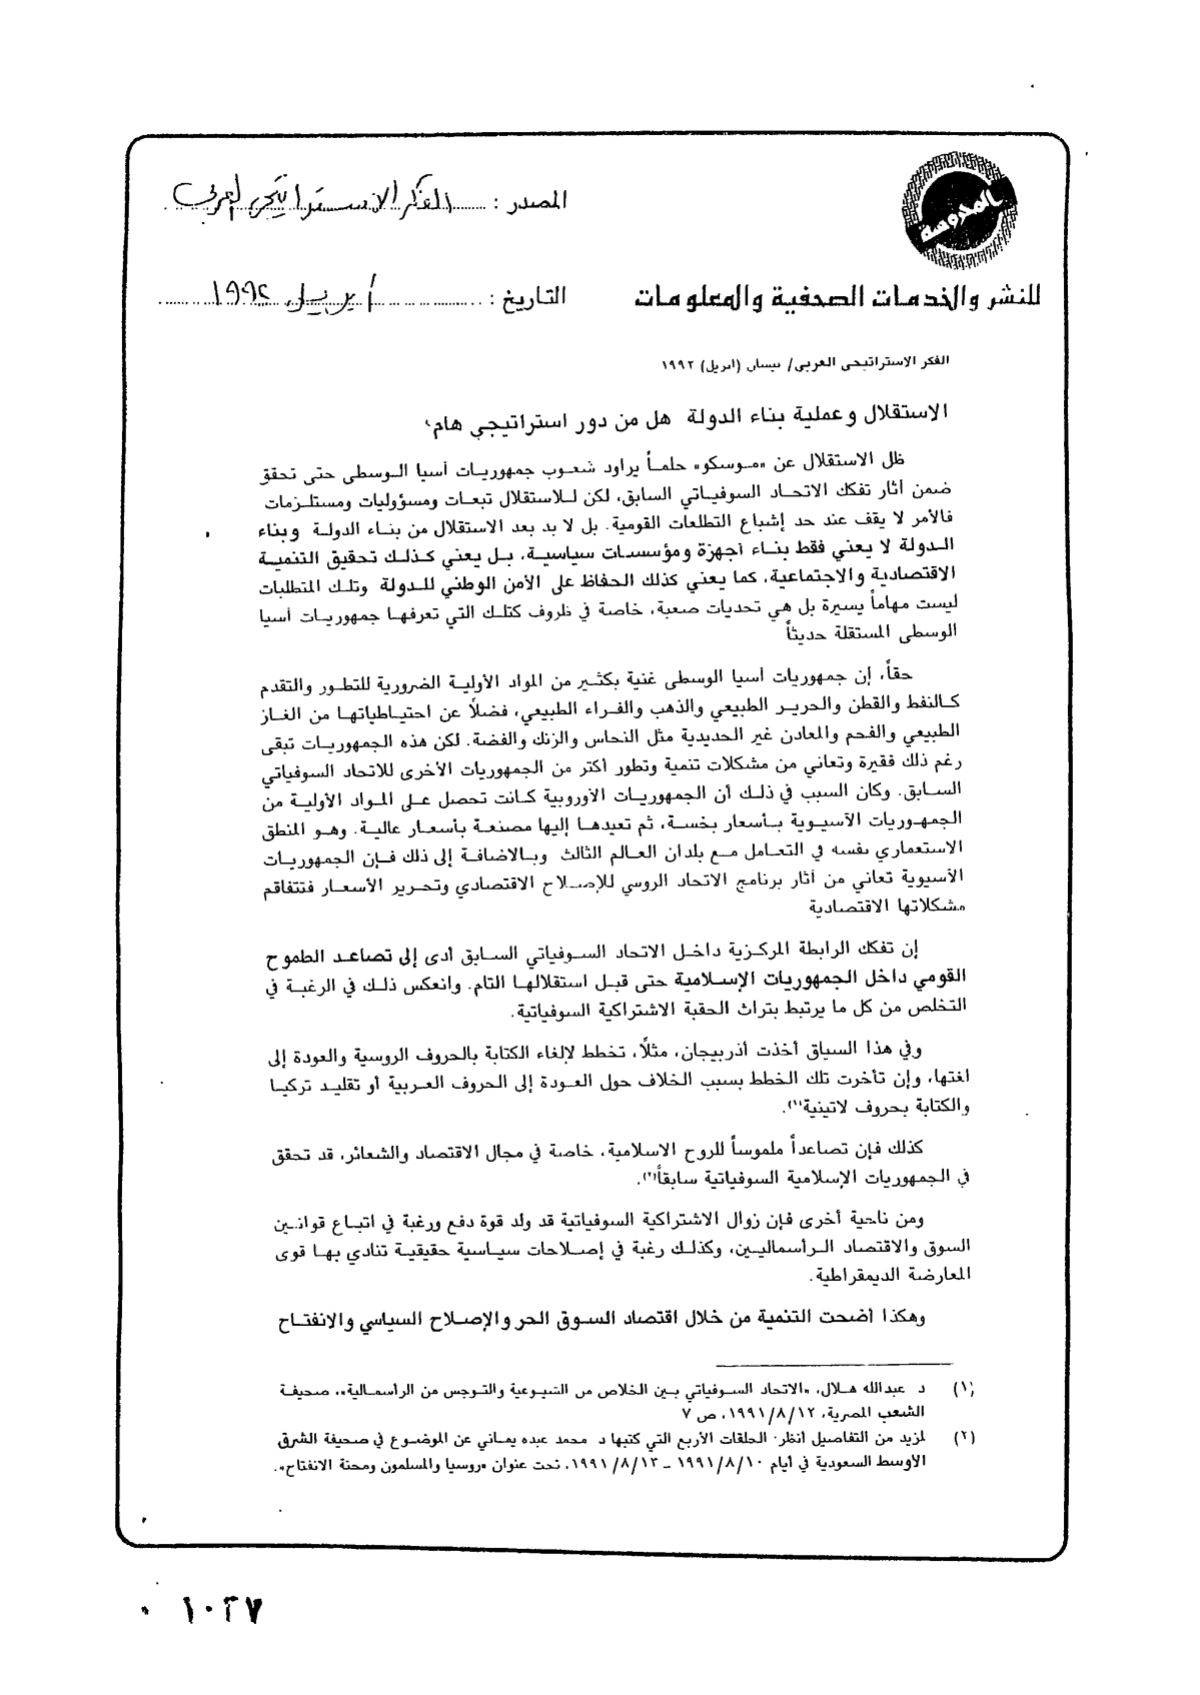 المحروسة
المصدر : الفكر الاستراتيجى العربى
للنشر والخدمات الصحفية والمعلومات
التاريخ : أبريل ١٩٩٢
الفكر الاستراتيجي العربي/ نيسان (ابريل) ١٩٩٢
الاستقلال وعملية بناء الدولة هل من دور استراتيجي هام
ظل الاستقلال عن «موسكو» حلمـاً يراود شعـوب جمهوريـات آسيا الـوسطى حتى تحقق
ضمن آثار تفكك الاتحـاد السوفيـاتي السابق، لكن لـلاستقلال تبعـات ومسؤوليات ومستلـزمات
فالأمر لا يقف عند حد إشباع التطلعات القومية. بل لا بد بعد الاستقلال من بنـاء الدولـة وبناء
الـدولة لا يعني فقط بنـاء أجهزة ومؤسسـات سياسيـة، بـل يعني كـذلـك تحقيق التنميـة
الاقتصادية والاجتماعية، كما يعني كذلك الحفاظ على الأمن الوطني للـدولة وتلـك المتطلبات
ليست مهاماً يسيرة بل هي تحديات صعبة، خاصة في ظروف كتلـك التي تعرفهـا جمهوريـات آسيا
الوسطى المستقلة حديثاً
حقاً، إن جمهوريات آسيا الوسطى غنية بكثـير من المواد الأوليـة الضرورية للتطـور والتقدم
كـالنفط والقطن والحريـر الطبيعي والذهب والفـراء الطبيعي، فضلًا عن احتيـاطياتهـا من الغـاز
الطبيعي والفحم والمعادن غير الحديدية مثل النحاس والزنك والفضة. لكن هذه الجمهوريـات تبقى
رغم ذلك فقيرة وتعاني من مشكلات تنمية وتطور أكثر من الجمهوريات الأخرى للاتحاد السوفياتي
السـابق. وكان السبب في ذلـك أن الجمهوريـات الأوروبية كـانت تحصل عـلى المـواد الأوليـة من
الجمهـوريات الآسيـوية بـأسعار بخسـة، ثم تعيدهـا إليها مصنعـة بأسعـار عاليـة. وهـو المنطق
الاستعماري نفسه في التعامل مـع بلدان العـالم الثالث وبـالاضافـة إلى ذلك فـإن الجمهوريـات
الآسيوية تعاني من آثار برنامج الاتحاد الروسي للإصـلاح الاقتصادي وتحـرير الأسعـار فتتفاقم
مشكلاتها الاقتصادية
إن تفكك الرابطة المركـزية داخـل الاتحاد السـوفياتي السـابق أدى إلى تصاعـد الطموح
القومي داخل الجمهوريات الإسلامية حتى قبـل استقلالهـا التام. وانعكس ذلـك في الرغبـة في
التخلص من كل ما يرتبط بتراث الحقبة الاشتراكية السوفياتية.
وفي هذا السياق أخذت أذربيجان، مثلًا، تخطط لإلغاء الكتابة بالحروف الروسية والعودة إلى
لغتها، وإن تأخرت تلك الخطط بسبب الخلاف حول العـودة إلى الحروف العـربية أو تقليـد تركيـا
والكتابة بحروف لاتينية(١).
كذلك فإن تصاعداً ملموساً للروح الاسلامية، خاصة في مجال الاقتصاد والشعائر، قد تحقق
في الجمهوريات الإسلامية السوفياتية سابقاً(٢).
ومن ناحية أخرى فإن زوال الاشتراكية السوفياتية قد ولد قوة دفع ورغبة في اتبـاع قوانـين
السوق والاقتصاد الـرأسماليـين، وكذلـك رغبة في إصـلاحات سيـاسية حقيقيـة تنادي بهـا قوى
المعارضة الديمقراطية.
وهكذا أضحت التنمية من خلال اقتصاد السـوق الحر والإصـلاح السياسي والانفتـاح
(١) د عبدالله هـلال، «الاتحاد السـوفياتي بـين الخلاص من الشيـوعية والتـوجس من الرأسمـالية»، صحيفـة
الشعب المصرية، ١٩٩١/٨/١٢، ص ٧
(٢) لمزيد من التفاصيل انظر: الحلقات الأربع التي كتبها د محمد عبده يمـاني عن الموضـوع في صحيفة الشرق
الأوسط السعودية في أيام ١٩٩١/٨/١٠ ـ ١٩٩١/٨/١٣، تحت عنوان «روسيا والمسلمون ومحنة الانفتاح».
١٠٢٧